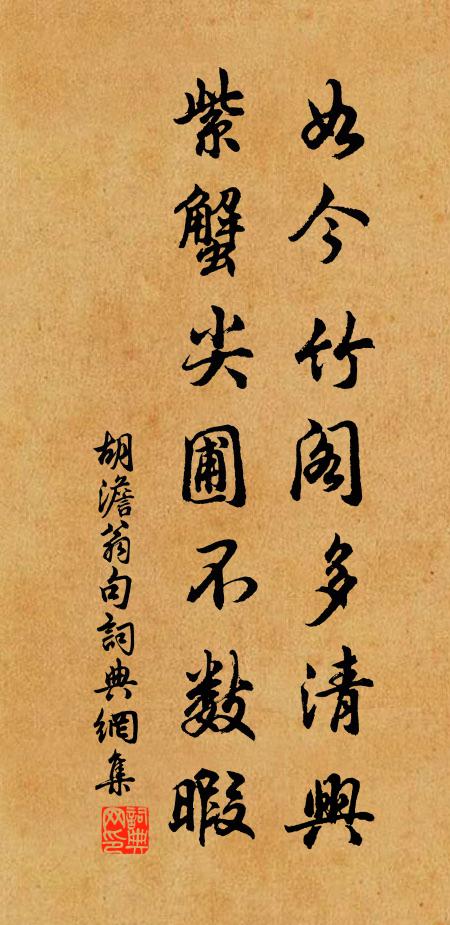 如今竹阁多清興
紫蟹尖團不數暇
胡澹翁句詞典網集
詞典网印